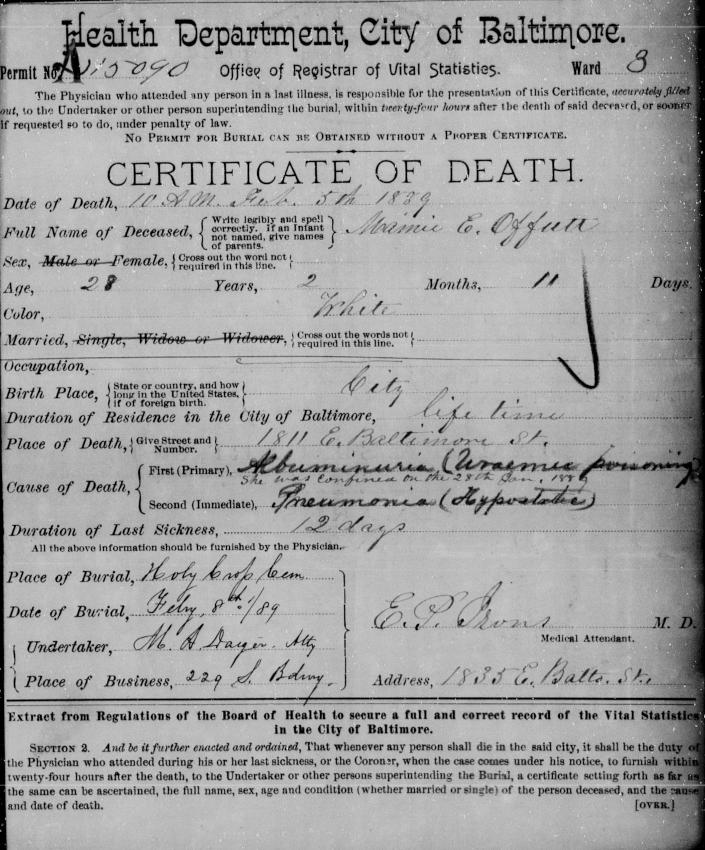 Health Department, City of Baltimore.
Permit No. A 15090 Office of Registrar of Vital Statistics. Ward 3
The Physician who attended any person in a last illness, is responsible for the presentation of this Certificate, accurately filled
out, to the Undertaker or other person superintending the burial, within twenty-four hours after the death of said deceased, or sooner
if requested so to do, under penalty of law.
No Permit for Burial can be Obtained without a Proper Certificate.
CERTIFICATE OF DEATH.
Date of Death, 10 A.M. Feb. 5th 1889
Full Name of Deceased, { Write legibly and spell correctly. If an Infant not named, give names of parents. } Mamie E. Offutt
Sex, Male or Female, { Cross out the word not required in this line. {
Age, 28 Years, 2 Months, 11 Days.
Color, White
Married, Single, Widow or Widower, { Cross out the words not required in this line. {
Occupation,
Birth Place, { State or country, and how long in the United States, if of foreign birth. } City
Duration of Residence in the City of Baltimore, life time
Place of Death, { Give Street and Number. } 1811 E. Baltimore St.
Cause of Death, { First (Primary), Albuminuria (Uraemic poisoning)
She was confined on the 28th Jan. 1889
Second (Immediate), Pneumonia (Hypostatic)
Duration of Last Sickness, 12 days
All the above information should be furnished by the Physician.
Place of Burial, Holy Cross Cem
Date of Burial, Feby. 8th /89
Undertaker, M. A. Daiger. Atty
Place of Business, 229 S. Bdwy.
E. P. Irons M. D.
Medical Attendant.
Address, 1835 E. Balto. St.
Extract from Regulations of the Board of Health to secure a full and correct record of the Vital Statistics
in the City of Baltimore.
Section 2. And be it further enacted and ordained, That whenever any person shall die in the said city, it shall be the duty of
the Physician who attended during his or her last sickness, or the Coroner, when the case comes under his notice, to furnish within
twenty-four hours after the death, to the Undertaker or other persons superintending the Burial, a certificate setting forth as far as
the same can be ascertained, the full name, sex, age and condition (whether married or single) of the person deceased, and the cause
and date of death. [OVER.]